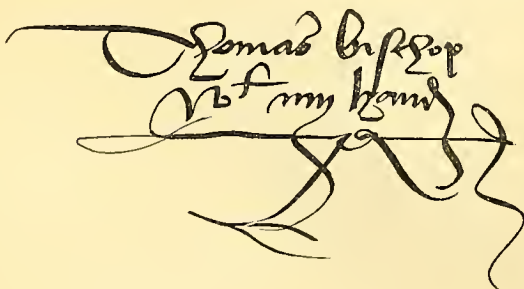 Thomas bischop
wt my hand